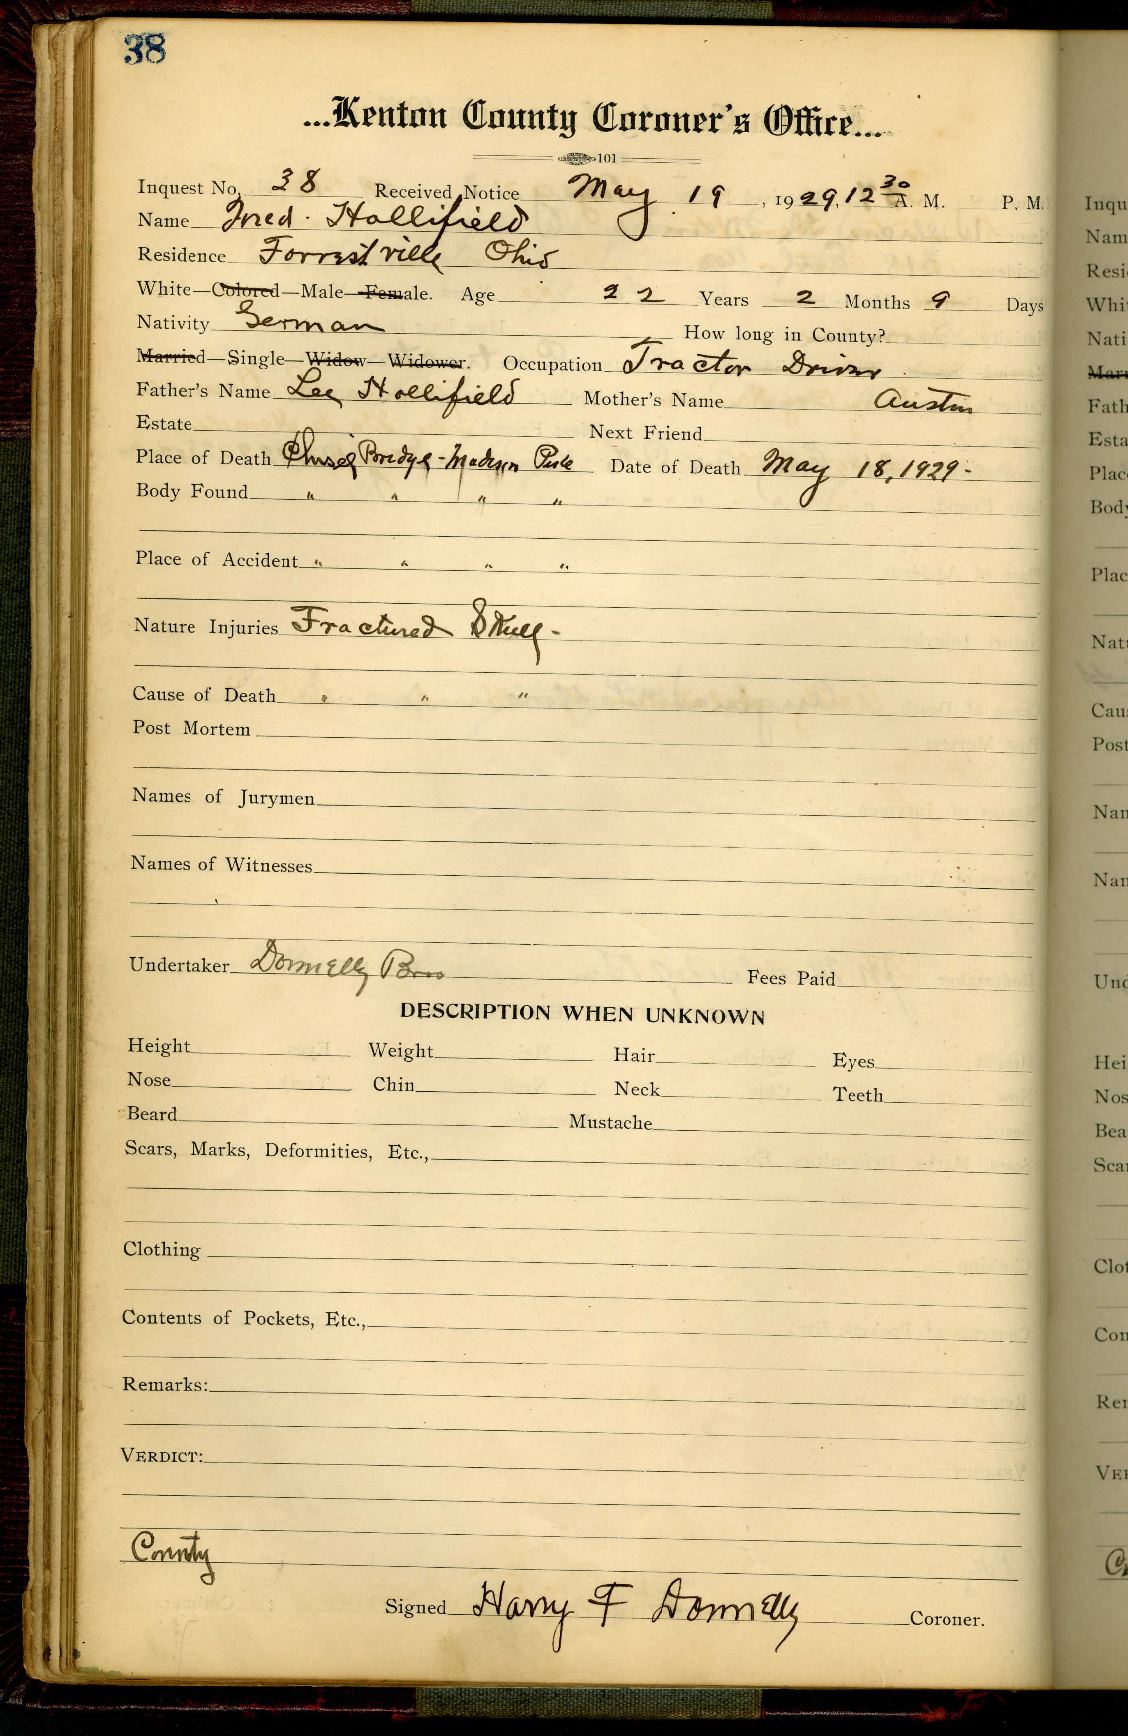 38
...Kenton County Coroner's Office...
101
Inquest No. 38 Received Notice May 19, 1929, 12 30 A. M. P. M.
Name Fred. Hollifield
Residence Forrestville Ohio
White—Colored—Male—Female. Age 22 Years 2 Months 9 Days
Nativity German How long in County?
Married—Single—Widow—Widower. Occupation Tractor Driver
Father's Name Lee Hollifield Mother's Name Austin
Estate Next Friend
Place of Death Bridge - Madison Pike Date of Death May 18, 1929-
Body Found " " " "
Place of Accident " " " "
Nature Injuries Fractured Skull-
Cause of Death " " "
Post Mortem
Names of Jurymen
Names of Witnesses
Undertaker Donnelly Bros Fees Paid
DESCRIPTION WHEN UNKNOWN
Height Weight Hair Eyes
Nose Chin Neck Teeth
Beard Mustache
Scars, Marks, Deformities, Etc.,
Clothing
Contents of Pockets, Etc.,
Remarks:
VERDICT:
County
Signed Harry F Donnelly Coroner.